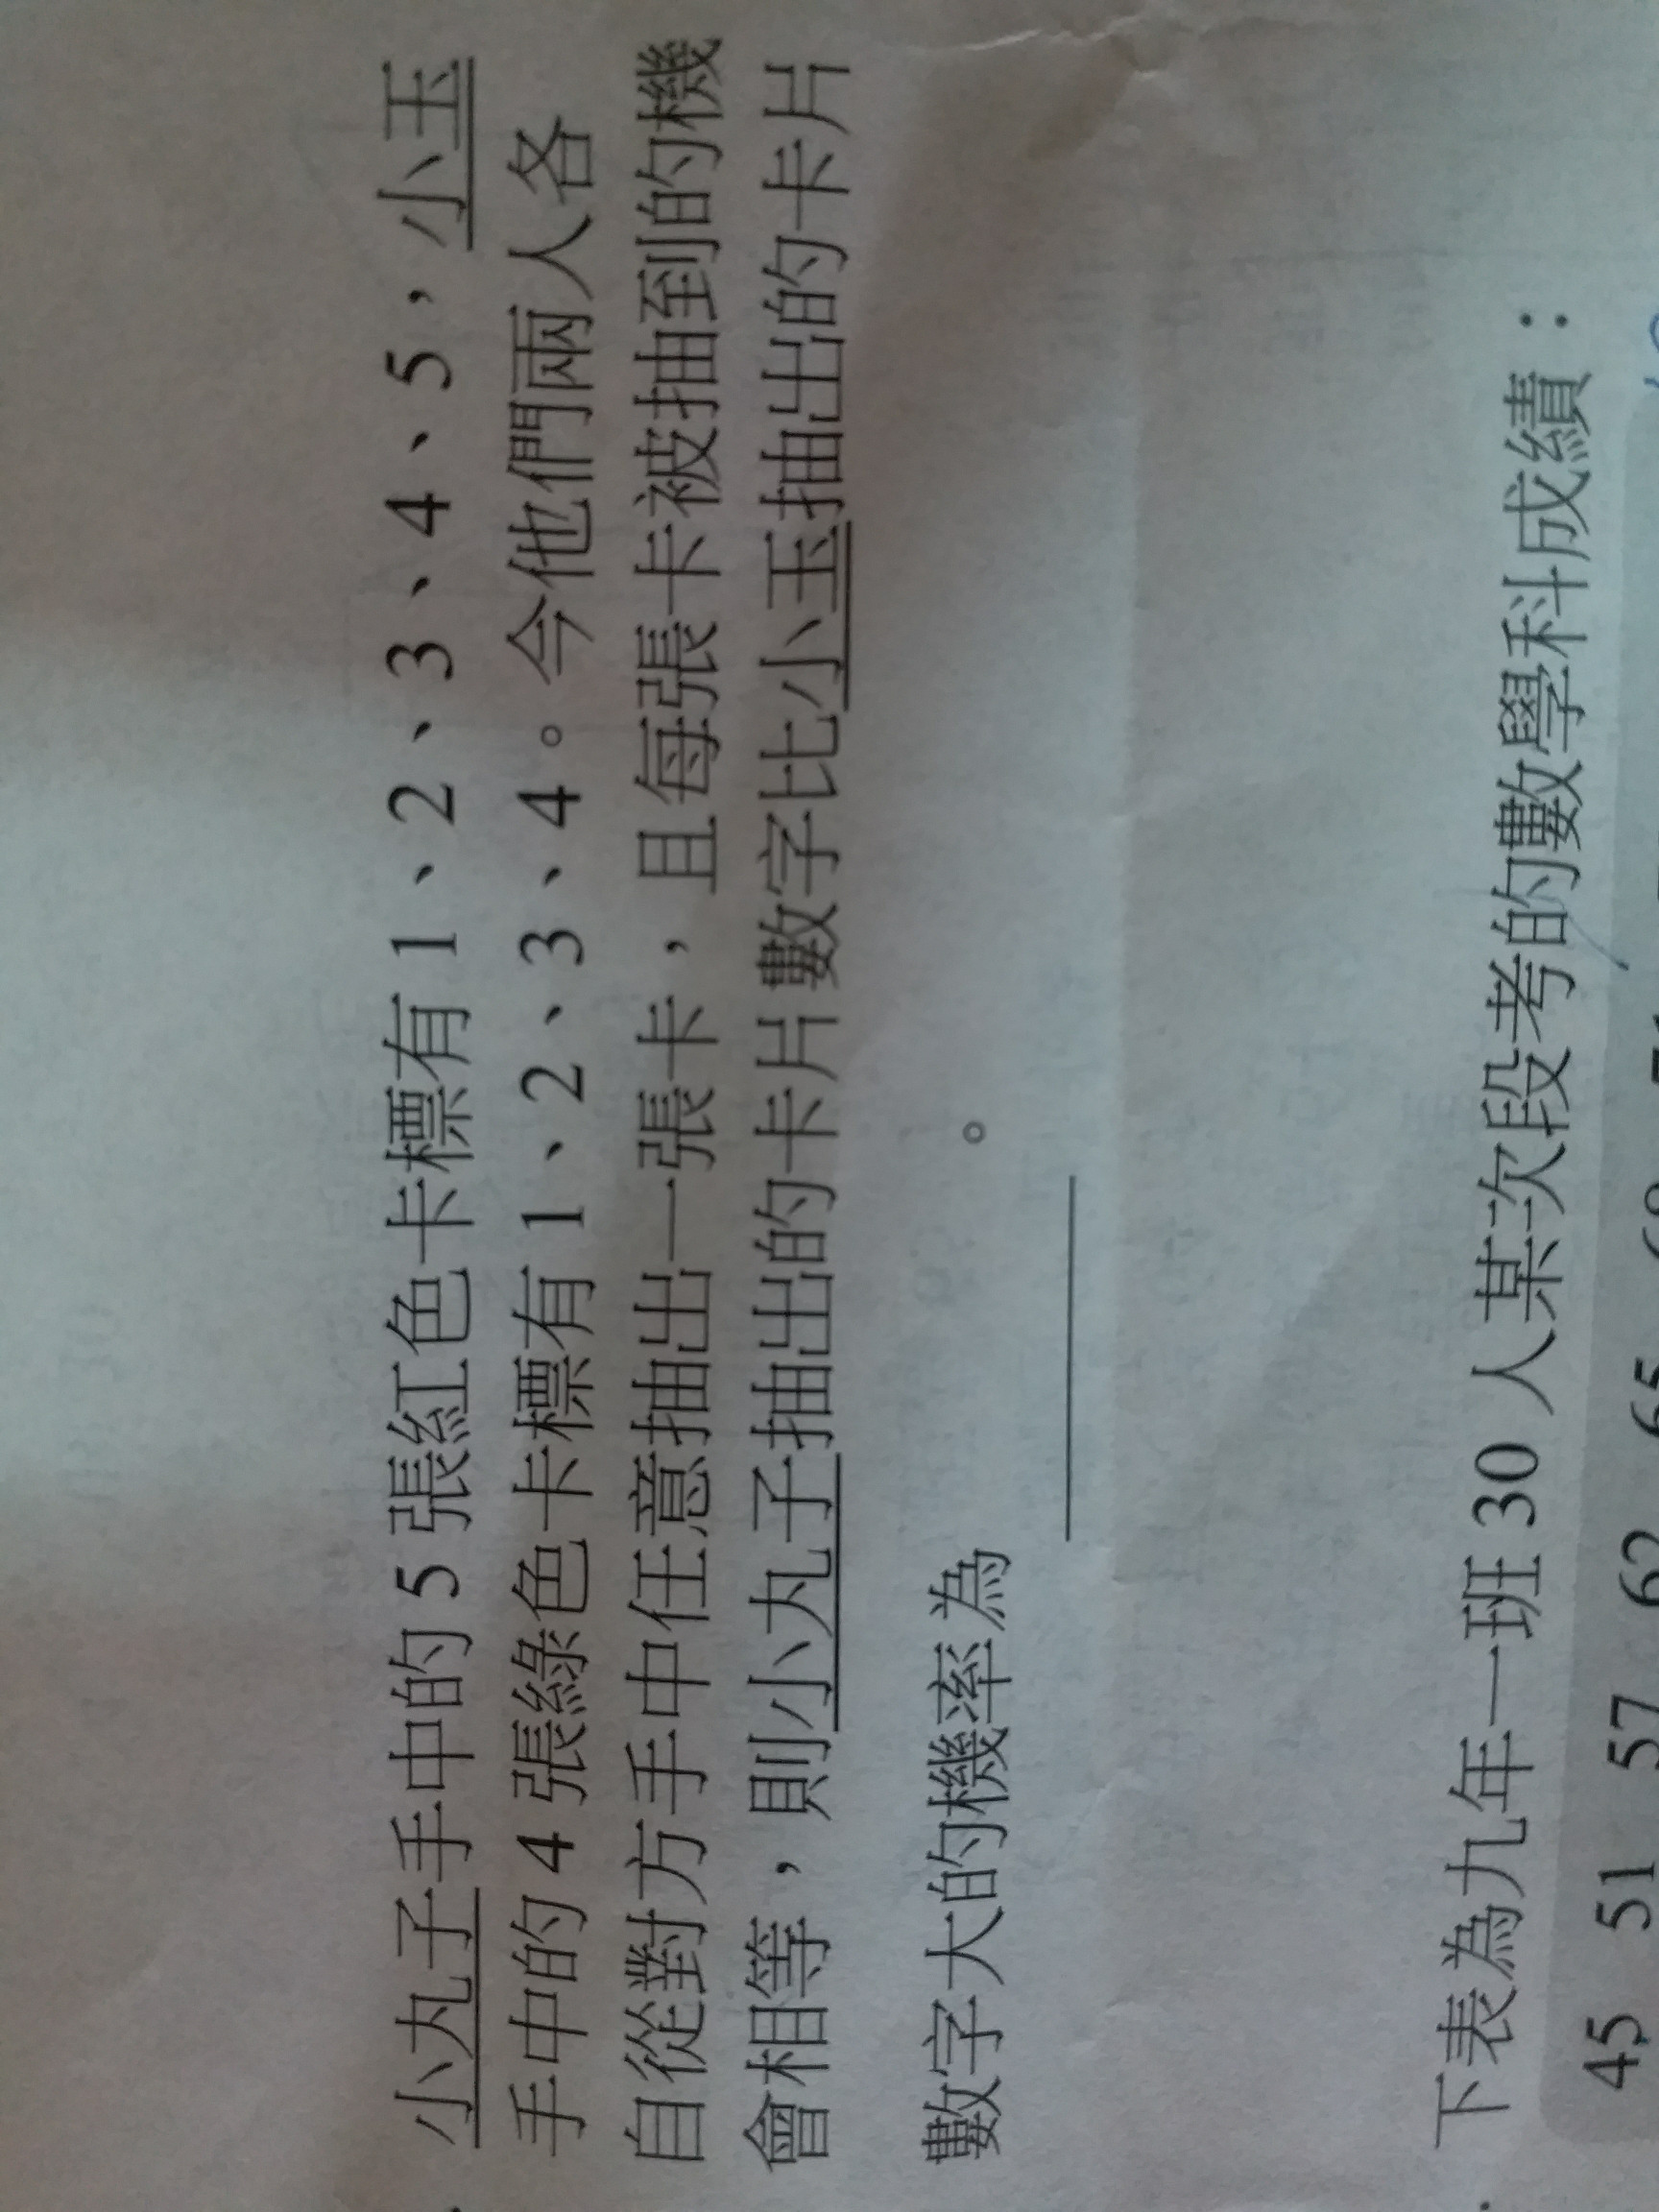 小丸子手中的 5 張紅色卡標有 1、2、3、4、5，小玉
手中的 4 張綠色卡標有 1、2、3、4。今他們兩人各
自從對方手中任意抽出一張卡，且每張卡被抽到的機
會相等，則小丸子抽出的卡片數字比小玉抽出的卡片
數字大的機率為＿＿＿＿。
下表為九年一班 30 人某次段考的數學科成績：
45 51 57 62 65